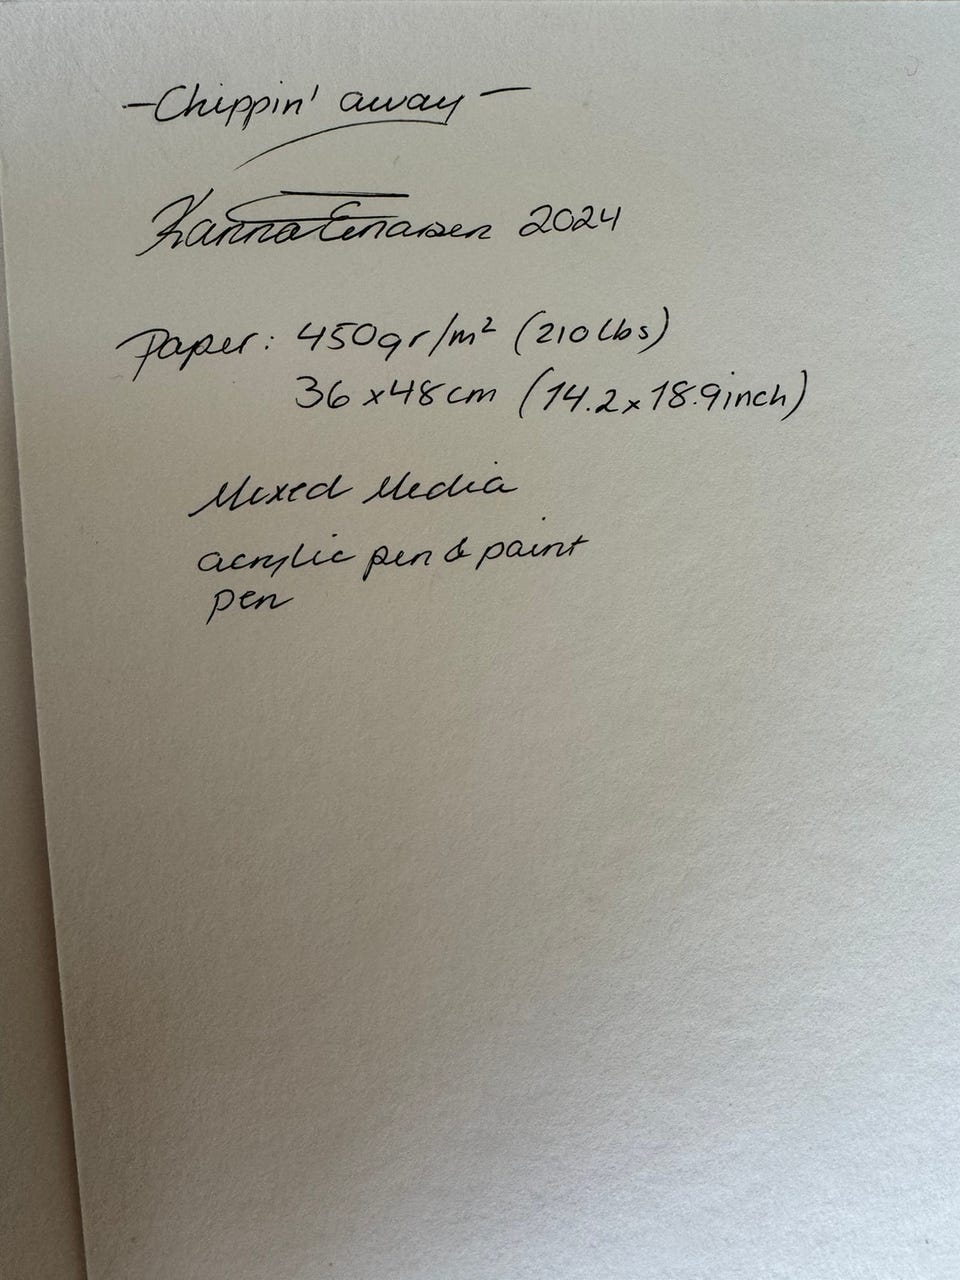 - Chippin' away -
2024
Paper: 450gr/m² (210 lbs)
36 x 48 cm (14.2 x 18.9 inch)
Mixed Media
acrylic pen & paint
pen